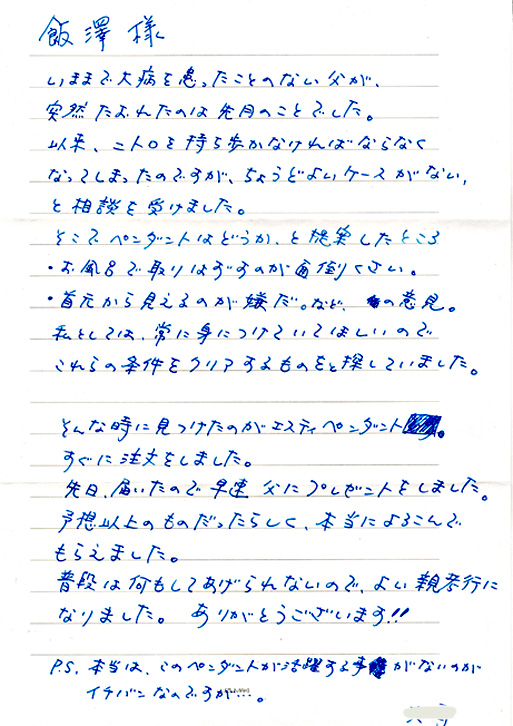 飯澤様
いままで大病を患ったことのない父が、
突然たおれたのは先月のことでした。
以来、ニトロを持ち歩かなければならなく
なってしまったのですが、ちょうどよいケースがない、
と相談を受けました。
そこでペンダントはどうか、と提案したところ
・お風呂で取りはずすのが面倒くさい。
・首元から見えるのが嫌だ。など、の意見。
私としては、常に身につけていてほしいので
これらの条件をクリアするものをと探していました。
そんな時に見つけたのがエスティペンダント。
すぐに注文をしました。
先日、届いたので早速父にプレゼントをしました。
予想以上のものだったらしく、本当によろこんで
もらえました。
普段は何もしてあげられないので、よい親孝行に
なりました。ありがとうございます!!
P.S. 本当は、このペンダントが活躍する事がないのが
イチバンなのですが…。